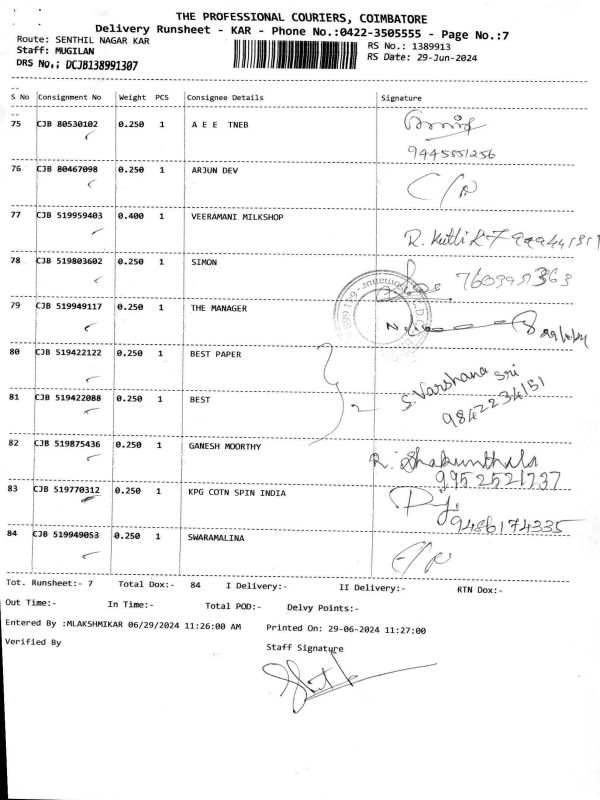 THE PROFESSIONAL COURIERS, COIMBATORE
Delivery Runsheet - KAR - Phone No.:0422-3505555 - Page No.:7
Route: SENTHIL NAGAR KAR
RS No.: 1389913
Staff: MUGILAN
RS Date: 29-Jun-2024
DRS No.; DCJB138991307
S No Consignment No Weight PCS Consignee Details Signature
75 CJB 80530102 0.250 1 A E E TNEB
9445551256
76 CJB 80467098 0.250 1 ARJUN DEV
77 CJB 519959403 0.400 1 VEERAMANI MILKSHOP
78 CJB 519803602 0.250 1 SIMON
79 CJB 519949117 0.250 1 THE MANAGER
80 CJB 519422122 0.250 1 BEST PAPER
2 S. Varshana Sri
81 CJB 519422088 0.250 1 BEST
9842234151
82 CJB 519875436 0.250 1 GANESH MOORTHY
R. Shakunthala
9952521737
83 CJB 519770312 0.250 1 KPG COTN SPIN INDIA
9486174335
84 CJB 519949053 0.250 1 SWARAMALINA
Tot. Runsheet:- 7 Total Dox:- 84 I Delivery:- II Delivery:- RTN Dox:-
Out Time:- In Time:- Total POD:- Delvy Points:-
Entered By :MLAKSHMIKAR 06/29/2024 11:26:00 AM Printed On: 29-06-2024 11:27:00
Verified By Staff Signature